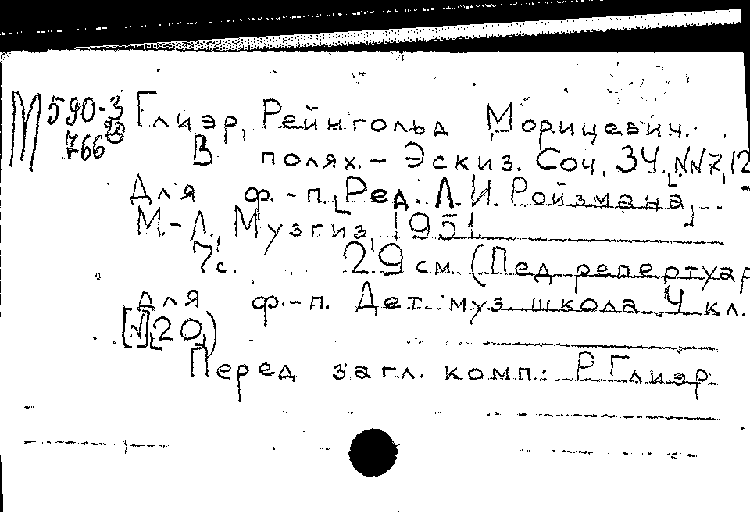 М 590-3 Глиэр, Рейнгольд Морицевич.
766 В полях. - Эскиз. Соч. 34. [№№ 7, 12
Для ф.-п. [Ред. Л. И. Ройзмана]
М.-Л., Музгиз, 1951
7 с. 29 см. (Пед репертуар
для ф.-п. Дет. муз. школа 4 кл.
[№] 20)
Перед загл. комп.: Р Глиэр